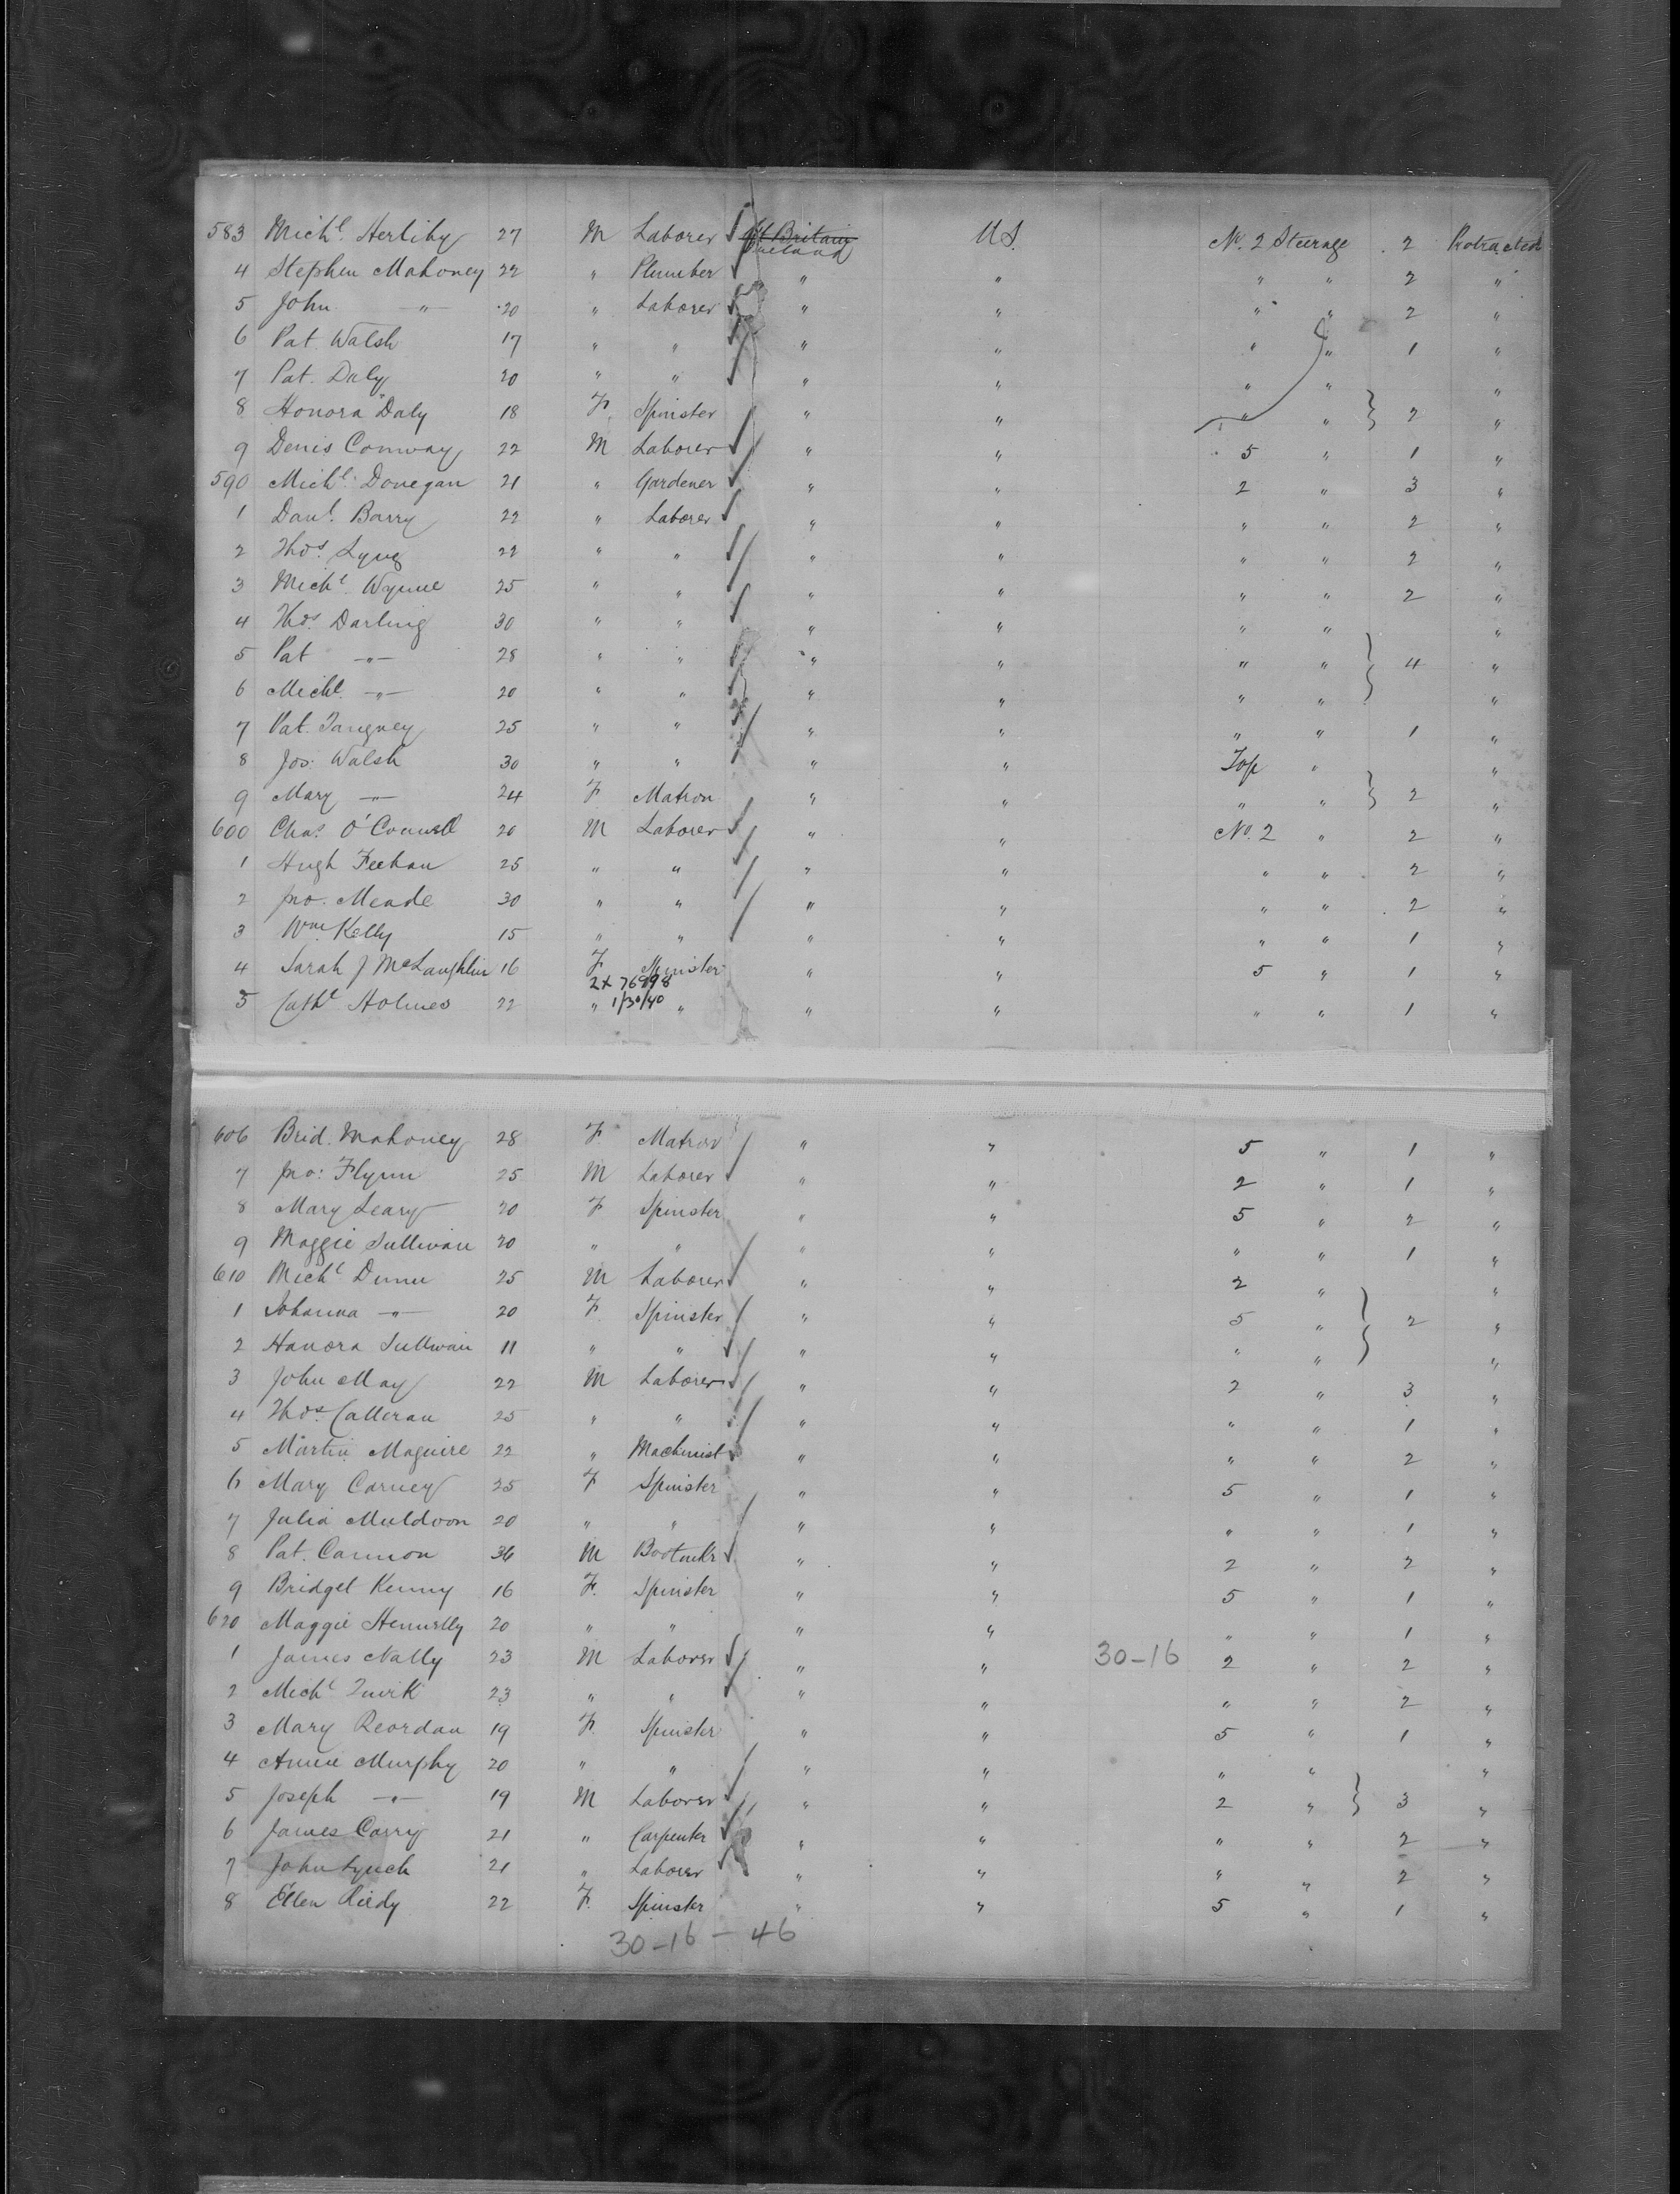 583 Michl. Herlihy 27 M Laborer Gt Britain Ireland U.S. No. 2 Steerage 2 Protracted
4 Stephen Mahoney 22 " Plumber " " " " 2 "
5 John —"— 20 " Laborer " " " " 2 "
6 Pat. Walsh 17 " " " " " " 1 "
7 Pat. Daly 20 " " " " " " "
8 Honora Daly 18 F. Spinster " " " " } 2 "
9 Denis Conway 22 M Laborer " " 5 " 1 "
590 Michl. Donegan 21 " Gardener " " 2 " 3 "
1 Danl. Barry 22 " Laborer " " " " 2 "
2 Thos. Lyng 22 " " " " " " 2 "
3 Michl. Wynne 25 " " " " " " 2 "
4 Thos. Darling 30 " " " " " " "
5 Pat —"— 28 " " " " " " } 4 "
6 Michl. —"— 20 " " " " " " "
7 Pat. Tangney 25 " " " " " " 1 "
8 Jos. Walsh 30 " " " " Top " "
9 Mary —"— 24 F Matron " " " " } 2 "
600 Chas. O'Connell 20 M Laborer " " No. 2 " 2 "
1 Hugh Feehan 25 " " " " " " 2 "
2 Jno. Meade 30 " " " " " " 2 "
3 Wm. Kelly 15 " " " " " " 1 "
4 Sarah J McLaughlin 16 F Spinster " " 5 " 1 "
2x 76898
5 Cathe Holmes 22 " 1/30/40 " " " " " 1 "
606 Brid. Mahoney 28 F. Matron " " 5 " 1 "
7 Jno: Flynn 25 M Laborer " " 2 " 1 "
8 Mary Leary 20 F Spinster " " 5 " 2 "
9 Maggie Sullivan 20 " " " " " " 1 "
610 Michl Dunn 25 M Laborer " " 2 " "
1 Johanna —"— 20 F. Spinster " " 5 " } 2 "
2 Hanora Sullivan 11 " " " " " " "
3 John May 22 M Laborer " " 2 " 3 "
4 Thos. Calleran 25 " " " " " " 1 "
5 Martin Maguire 22 " Machinist " " " " 2 "
6 Mary Carney 25 F Spinster " " 5 " 1 "
7 Julia Muldoon 20 " " " " " " 1 "
8 Pat. Cannon 36 M Bootmkr " " 2 " 2 "
9 Bridget Kenny 16 F. Spinster " " 5 " 1 "
620 Maggie Hennelly 20 " " " " " " 1 "
1 James Nally 23 M Laborer " " 30-16 2 " 2 "
2 Michl Quirk 23 " " " " " " 2 "
3 Mary Reordan 19 F. Spinster " " 5 " 1 "
4 Annie Murphy 20 " " " " " " "
5 Joseph —"— 19 M Laborer " " 2 " } 3 "
6 James Corry 21 " Carpenter " " " " 2 "
7 John Lynch 21 " Laborer " " " " 2 "
8 Ellen Riedy 22 F. Spinster " " 5 " 1 "
30-16-46